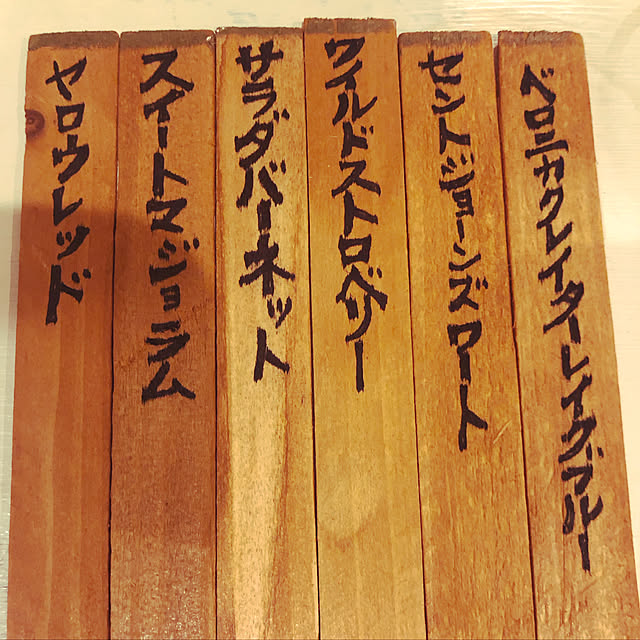 ベロニカクレイターレイクブルー
セントジョーンズワート
ワイルドストロベリー
サラダバーネット
スイートマジョラム
ヤロウレッド